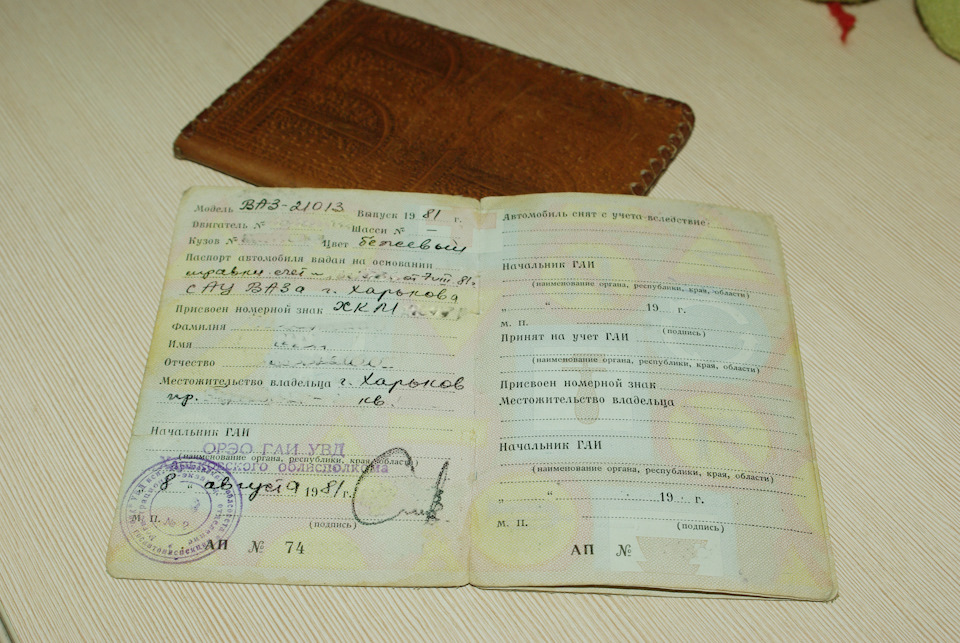 Модель ВАЗ-21013 Выпуск 1981 г.
Двигатель № Шасси № —
Кузов № Цвет бежевый
Паспорт автомобиля выдан на основании
справки счет – от 7 VIII 81г
САУ ВАЗа г. Харькова
Присвоен номерной знак ХКМ
Фамилия
Имя
Отчество
Местожительство владельца г. Харьков
пр. кв.
Начальник ГАИ
ОРЭО ГАИ УВД
(наименование органа, республики, края, области)
Харьковского облисполкома
8 " августа 1981 г.
М. П. № 2
(подпись)
АП № 74
Автомобиль снят с учета вследствие:
Начальник ГАИ
(наименование органа, республики, края, области)
" " 19 г.
М. П.
(подпись)
Принят на учет ГАИ
(наименование органа, республики, края, области)
Присвоен номерной знак
Местожительство владельца
Начальник ГАИ
(наименование органа, республики, края, области)
" " 19 г.
М. П.
(подпись)
АП №